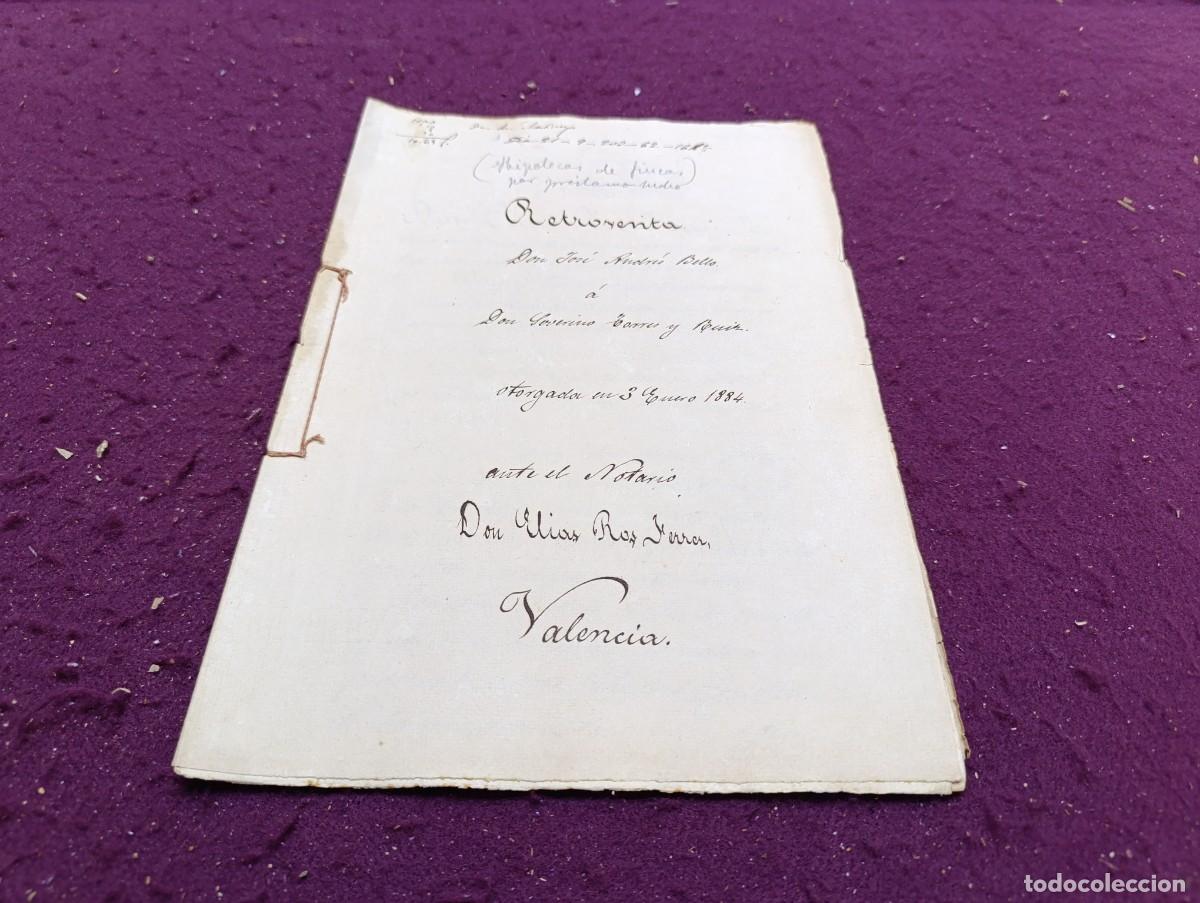 (Hipotecas de fincas)
por préstamo
Retroventa
Don José Andrés Bello.
á
Don Severino Torres y Ruiz.
otorgada en 3 Enero 1884.
ante el Notario
Don Elias Ros Ferrer,
Valencia.
todocoleccion